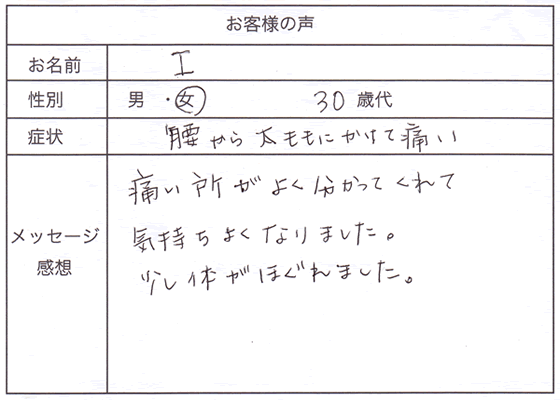 お客様の声
お名前 I
性別 男・女 30歳代
症状 腰から太ももにかけて痛い
メッセージ 感想
痛い所がよく分かってくれて
気持ちよくなりました。
少し体がほぐれました。